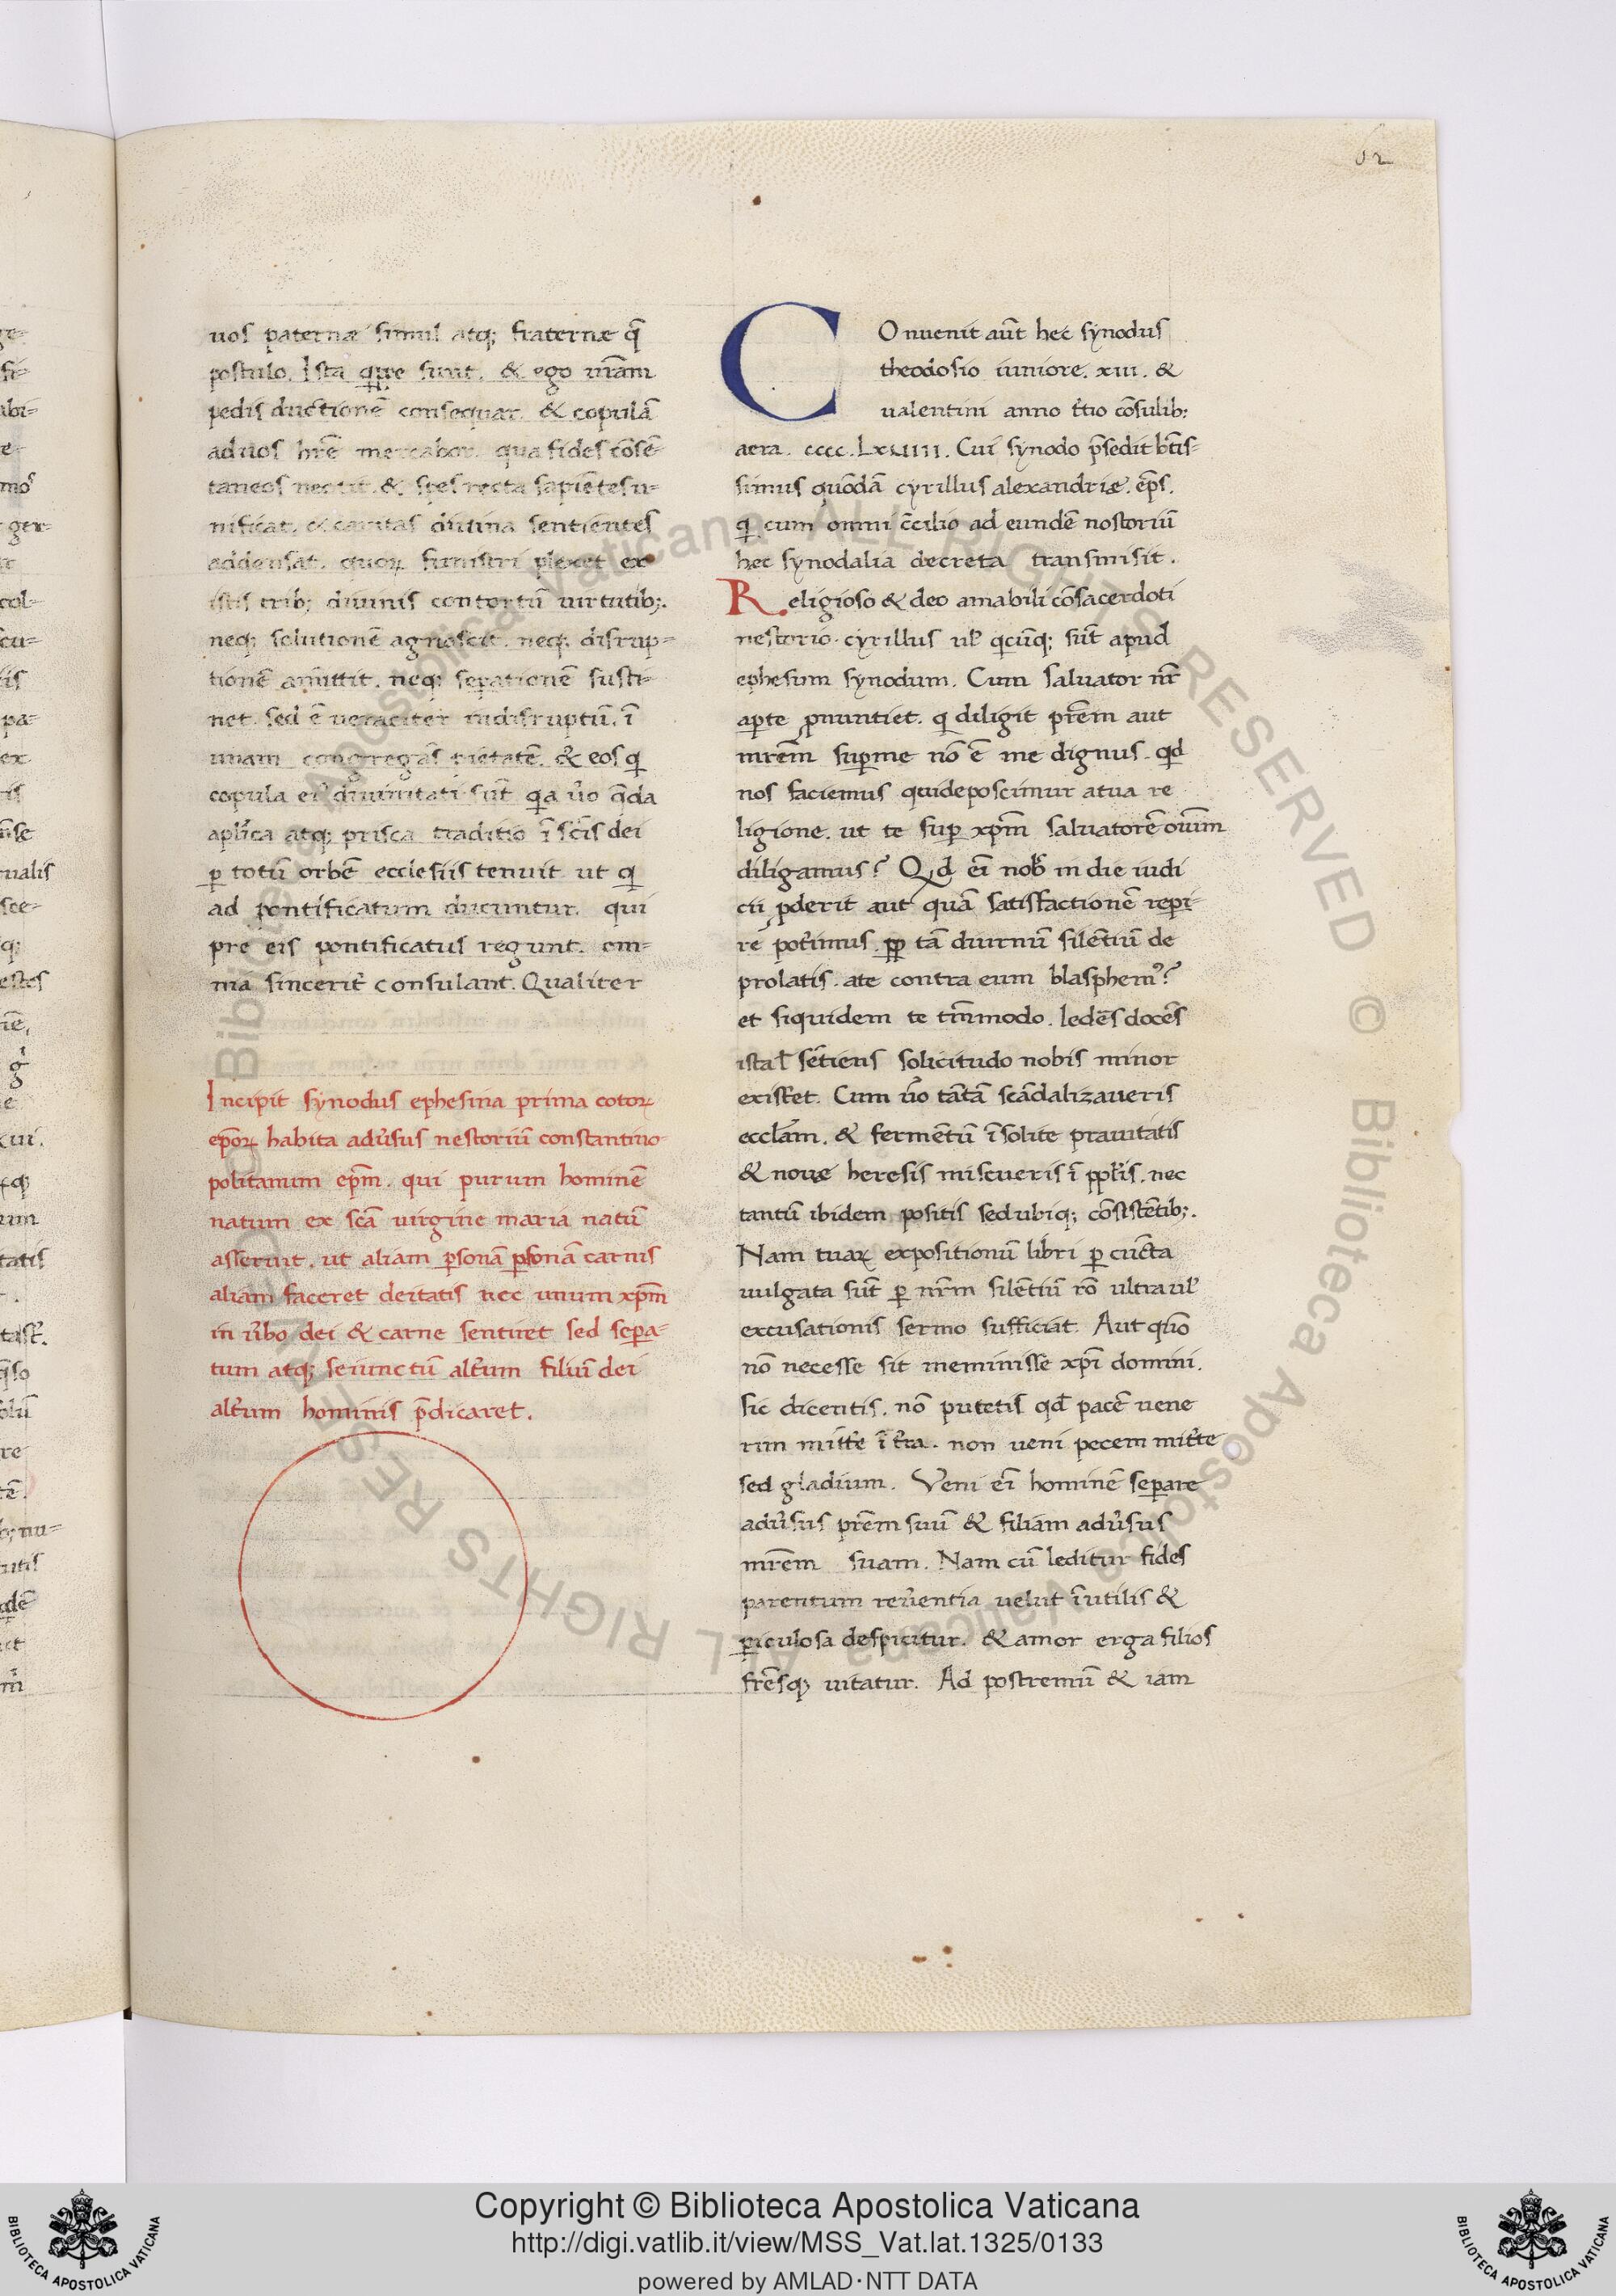 62
uos paternæ simul atq; fraternæ q̄
postulo. Ista quippe sunt. & ego ur̄am
pedis ductionē consequar. & copulā
ad uos hr̄e merear. qua fides cōsē-
taneos nectit. & spes recta sapiētes u-
nificat. & caritas diuina sentientes
addensat. quoꝝ funistri plexet ex
istis trib; diuinis contortū uirtutib;.
neq; solutionē agnoscit. neq; disrup-
tionē amittit. neq; seꝑationē susti-
net. sed ē ueraciter indisruptū. ī
unam congregās pietatē. & eos q
copula eiꝰ diuinitati sūt q̄a ūo q̄da
apl̄ica atq; prisca traditio ī scīs dei
ꝑ totū orbē ecclesiis tenuit ut q
ad pontificatum ducuntur. qui
pre eis pontificatus regunt. om-
nia sincerit̄ consulant. Qualiter
Incipit synodus ephesina prima cotoꝝ
ep̄oꝝ habita adūsus nestoriū constantino-
politanum ep̄m. qui purum hominē
natum ex scā uirgine maria natū
asseruit. ut aliam ꝑsonā ꝑsonā carnis
aliam faceret deitatis nec unum xp̄m
in ūbo dei & carne sentiret sed seꝑa-
tum atq; seiunctū alt̄um filiū dei
alt̄um hominis p̄dicaret.
COnuenit aūt hec synodus
theodosio iuniore. xiii. &
ualentini anno t̄tio cōsulib;
aera. cccc. Lxuiiii. Cui synodo p̄sedit bt̄is-
simus quōdā cyrillus alexandriæ. ep̄s.
q cum omni c̄cilio ad eundē nostoriū
hec synodalia decreta transmisit.
Religioso & deo amabili cōsacerdoti
nestorio. cyrillus ul̄ qcūq; sūt apud
ephesum synodum. Cum saluator nr̄
aꝑte ꝓnuntiet. q diligit pr̄em aut
mr̄em suꝑ me nō ē me dignus. qd
nos faciemus qui deposcimur a tua re
ligione. ut te suꝑ xp̄m saluatorē oīum
diligamus? Qd eī nob̄ in die iudi
cii ꝓderit aut quā satisfactionē reꝑi-
re pot̄imus. ꝓꝑ tā diurnū silentiū de
prolatis. a te contra eum blasphem̄?
et siquidem te tm̄modo. ledēs docēs
ista l̄ sētiens solicitudo nobis minor
exist̄et. Cum ūo tātā scādalizaueris
eccl̄am. & fermētū īsolite prauitatis
& nouæ heresis miscueris ī ppl̄is. nec
tantū ibidem positis sed ubiq; cōsistētib;.
Nam tuaꝝ expositionū libri ꝑ cūcta
uulgata sūt ꝑ nr̄m silētiū rō ultra ul̄
excusationis sermo sufficiat. Aut quō
nō necesse sit meminisse xp̄i domini.
sic dicentis. nō putetis qd̄ pacē uene
rim mitt̄e ī t̄ra. non ueni pecem mitt̄e
sed gladium. Veni eī hominē seꝑare
adūsus pr̄em suū & filiam adūsus
mr̄em suam. Nam cū leditur fides
parentum reūentia uelut īutilis &
ꝑiculosa despicitur. & amor erga filios
fr̄esq; uitatur. Ad postremū & iam
Copyright © Biblioteca Apostolica Vaticana
http://digi.vatlib.it/view/MSS_Vat.lat.1325/0133
powered by AMLAD·NTT DATA